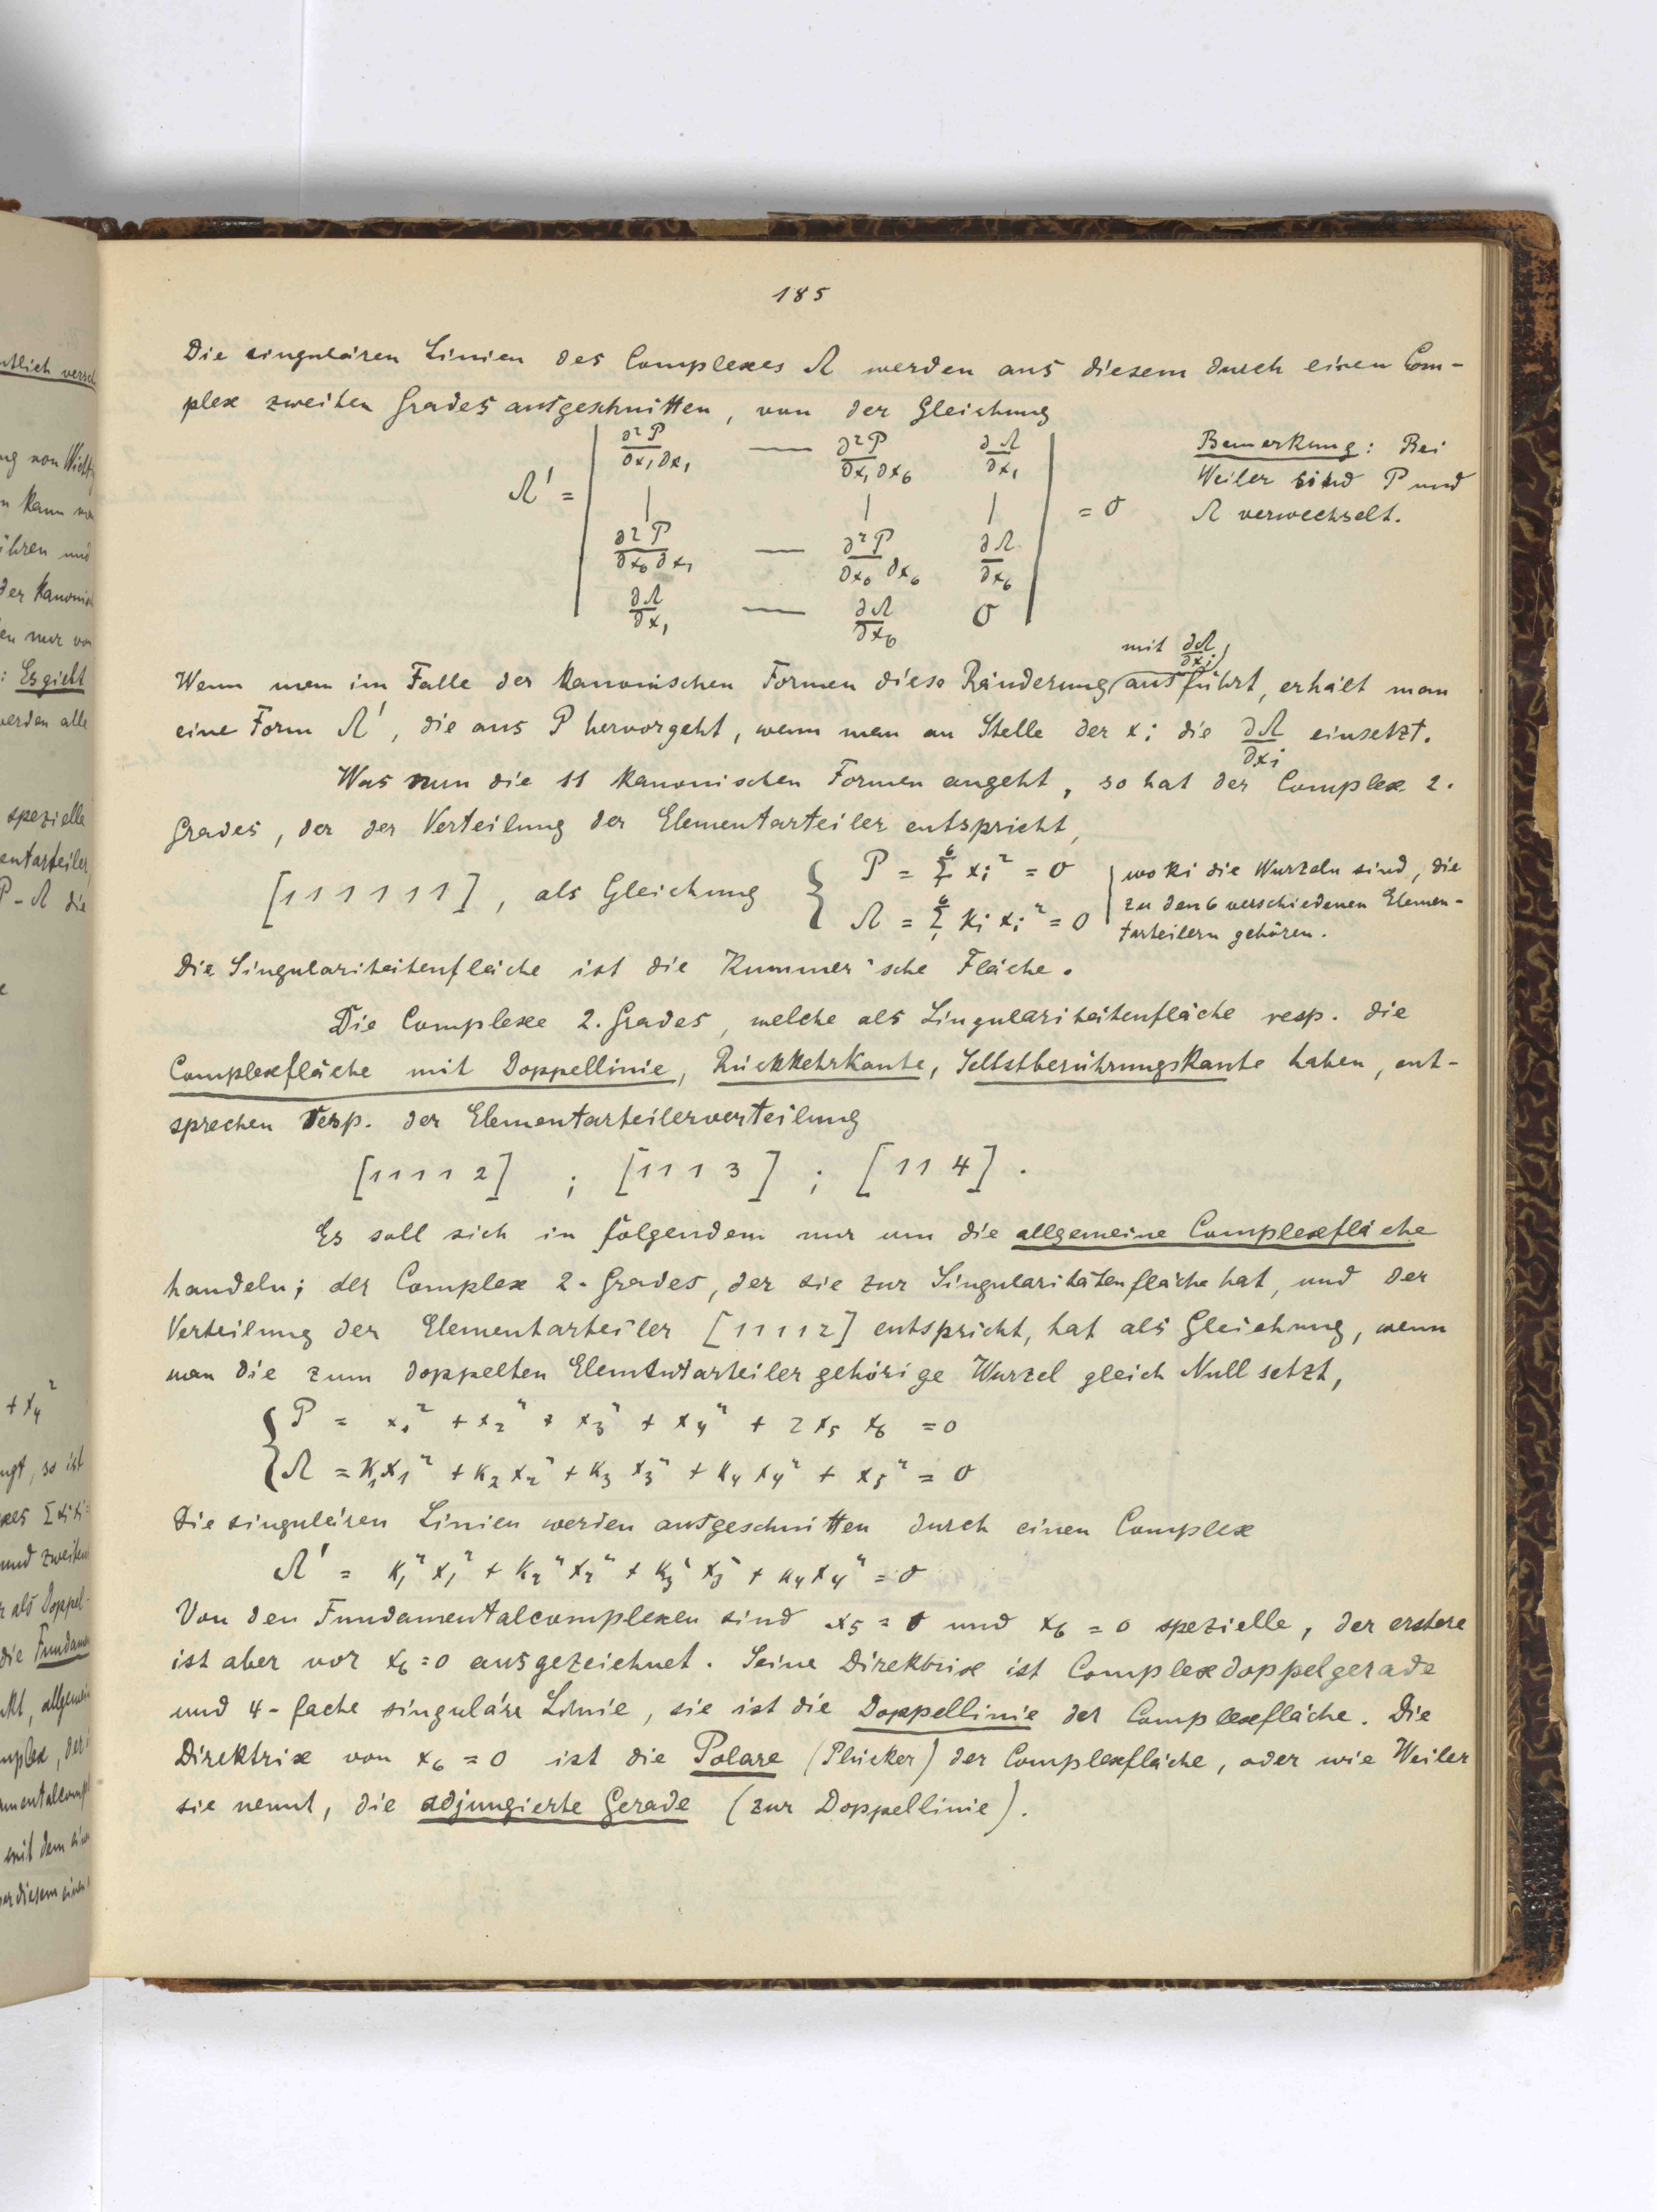 185
Die singulären Linien des Complexes Λ werden aus diesem durch einen Com-
plex zweiten Grades ausgeschnitten, von der Gleichung
Λ' = | ∂²P/∂x₁∂x₁ — ∂²P/∂x₁∂x₆ ∂Λ/∂x₁ |
| | |
| ∂²P/∂x₆∂x₁ — ∂²P/∂x₆∂x₆ ∂Λ/∂x₆ | = 0
| ∂Λ/∂x₁ — ∂Λ/∂x₆ 0 |
Bemerkung: Bei
Weiler sind P und
Λ verwechselt.
mit ∂Λ/∂xᵢ)
Wenn man im Falle der kanonischen Formen diese Ränderung (ausführt, erhält man
eine Form Λ', die aus P hervorgeht, wenn man an Stelle der xᵢ die ∂Λ/∂xᵢ einsetzt.
Was nun die 11 kanonischen Formen angeht, so hat der Complex 2.
Grades, der der Verteilung der Elementarteiler entspricht,
[1 1 1 1 1 1], als Gleichung { P = Σ₁⁶ xᵢ² = 0
Λ = Σ₁⁶ kᵢ xᵢ² = 0
wo ki die Wurzeln sind, die
zu den 6 verschiedenen Elemen-
tarteilern gehören.
Die Singularitätenfläche ist die Kummer'sche Fläche.
Die Complexe 2. Grades, welche als Singularitätenfläche resp. die
Complexfläche mit Doppellinie, Rückkehrkante, Selbstberührungskante haben, ent-
sprechen resp. der Elementarteilerverteilung
[1 1 1 1 2] ; [1 1 1 3] ; [1 1 4].
Es soll sich in folgendem nur um die allgemeine Complexfläche
handeln; der Complex 2. Grades, der sie zur Singularitätenfläche hat, und der
Verteilung der Elementarteiler [1 1 1 1 2] entspricht, hat als Gleichung, wenn
man die zum doppelten Elementarteiler gehörige Wurzel gleich Null setzt,
{ P = x₁² + x₂² + x₃² + x₄² + 2 x₅ x₆ = 0
Λ = k₁x₁² + k₂x₂² + k₃x₃² + k₄x₄² + x₅² = 0
Die singulären Linien werden ausgeschnitten durch einen Complex
Λ' = k₁²x₁² + k₂²x₂² + k₃²x₃² + k₄x₄² = 0
Von den Fundamentalcomplexen sind x₅ = 0 und x₆ = 0 spezielle, der erstere
ist aber vor x₆ = 0 ausgezeichnet. Seine Direktrix ist Complexdoppelgerade
und 4-fache singuläre Linie, sie ist die Doppellinie der Complexfläche. Die
Direktrix von x₆ = 0 ist die Polare (Plücker) der Complexfläche, oder wie Weiler
sie nennt, die adjungierte Gerade (zur Doppellinie).